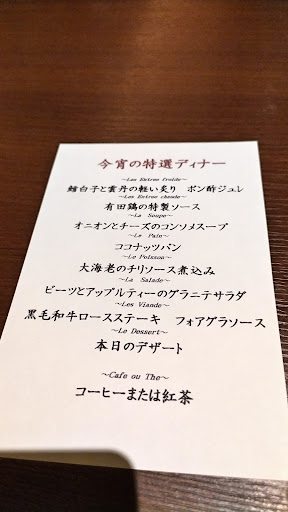 今宵の特選ディナー
～Les Entree froide～
鱈白子と雲丹の軽い炙り　ポン酢ジュレ
～Les Entree chaude～
有田鶏の特製ソース
～La Soupe～
オニオンとチーズのコンソメスープ
～Le Pain～
ココナッツパン
～Le Poisson～
大海老のチリソース煮込み
～La Salade～
ビーツとアップルティーのグラニテサラダ
～Les Viande～
黒毛和牛ロースステーキ　フォアグラソース
～Le Dessert～
本日のデザート
～Cafe ou The～
コーヒーまたは紅茶